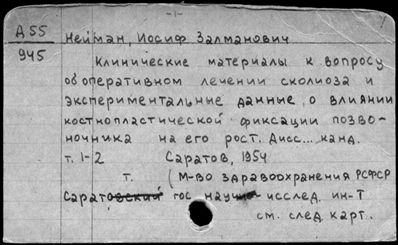 А 55
945
Нейман, Иосиф Залманович
Клинические материалы к вопросу
об оперативном лечении сколиоза и
экспериментальные данные о влиянии
костнопластической фиксации позво-
ночника на его рост. Дисс... канд.
т. 1-2 Саратов, 1954
т. (М-во здравоохранения РСФСР
Саратовский гос науч исслед. ин-т
см. след карт.